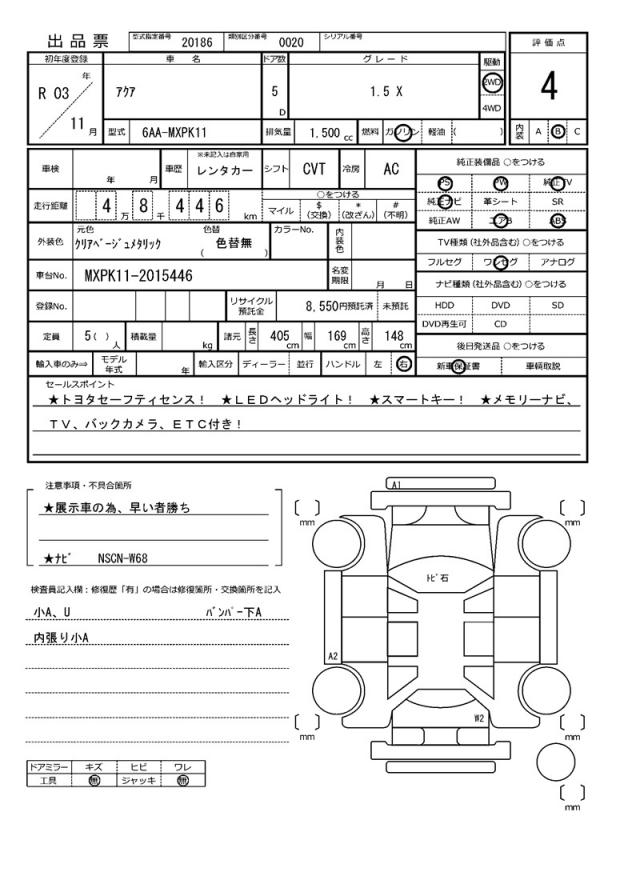 出品票 型式指定番号 20186 類別区分番号 0020 シリアル番号
初年度登録 車名 ドア数 グレード 駆動 評価点
R 03 年 11 月 アクア 5 D 1.5 X 2WD 4WD 4
型式 6AA-MXPK11 排気量 1.500 cc 燃料 ガソリン 軽油 ( ) 内装 A B C
車検 年 月 車歴 ※未記入は自家用 レンタカー シフト CVT 冷房 AC
走行距離 4 万 8 千 4 4 6 km ○をつける マイル $ (交換) * (改ざん) # (不明)
外装色 元色 クリアベージュメタリック 色替 ( 色替無 ) カラーNo. 内装色
車台No. MXPK11-2015446 名変期限 月 日
登録No. リサイクル預託金 8,550円預託済 未預託
定員 5 ( ) 人 積載量 kg 諸元 長さ 405 cm 幅 169 cm 高さ 148 cm
輸入車のみ⇒ モデル年式 年 輸入区分 ディーラー 並行 ハンドル 左 右
純正装備品 ○をつける
PS PW 純正TV
純正ナビ 革シート SR
純正AW エアB ABS
TV種類 (社外品含む) ○をつける
フルセグ ワンセグ アナログ
ナビ種類 (社外品含む) ○をつける
HDD DVD SD
DVD再生可 CD
後日発送品 ○をつける
新車保証書 車輌取説
セールスポイント
★トヨタセーフティセンス! ★LEDヘッドライト! ★スマートキー! ★メモリーナビ、
TV、バックカメラ、ETC付き!
注意事項・不具合箇所
★展示車の為、早い者勝ち
★ナビ NSCN-W68
検査員記入欄:修復歴「有」の場合は修復箇所・交換箇所を記入
小A、U バンパー下A
内張り小A
ドアミラー キズ ヒビ ワレ
工具 無 ジャッキ 無
A1
mm
mm
トビ石
A2
W2
mm
mm
mm